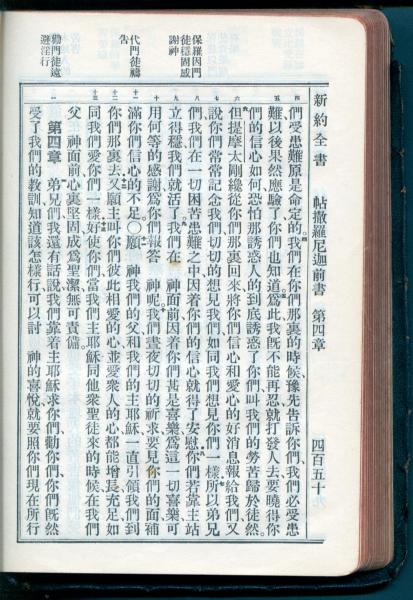 新約全書 帖撒羅尼迦前書 第四章 四百五十九
四 們受患難原是命定的、我們在你們那裏的時候、豫先告訴你們、我們必受患
五 難、以後果然應驗了、你們也知道、爲此我旣不能再忍、就打發人去、要曉得你
們的信心如何、恐怕那誘惑人的到底誘惑了你們、叫我們的勞苦歸於徒然。
六 但提摩太剛纔從你們那裏回來、將你們信心和愛心的好消息報給我們、又
七 說你們常常記念我們、切切的想見我們、如同我們想見你們一樣、所以弟兄
八 們、我們在一切困苦患難之中、因着你們的信心就得了安慰、你們若靠主站
九 立得穩、我們就活了、我們在 神面前、因着你們甚是喜樂、爲這一切喜樂、可
十 用何等的感謝、爲你們報答 神呢、我們晝夜切切的祈求、要見你們的面、補
十一 滿你們信心的不足。〇願 神我們的父、和我們的主耶穌、一直引領我們到
十二 你們那裏去、又願主叫你們彼此相愛的心、並愛衆人的心、都能增長充足、如
十三 同我們愛你們一樣、好使你們當我們主耶穌同他衆聖徒來的時候、在我們
父 神面前、心裏堅固、成爲聖潔、無可責備。
一 第四章 弟兄們、我還有話說、我們靠着主耶穌求你們勸你們、你們旣然
受了我們的教訓、知道該怎樣行、可以討 神的喜悅、就要照你們現在所行
保羅因門
徒穩固感
謝神
代門徒禱
告
勸門徒遠
避淫行